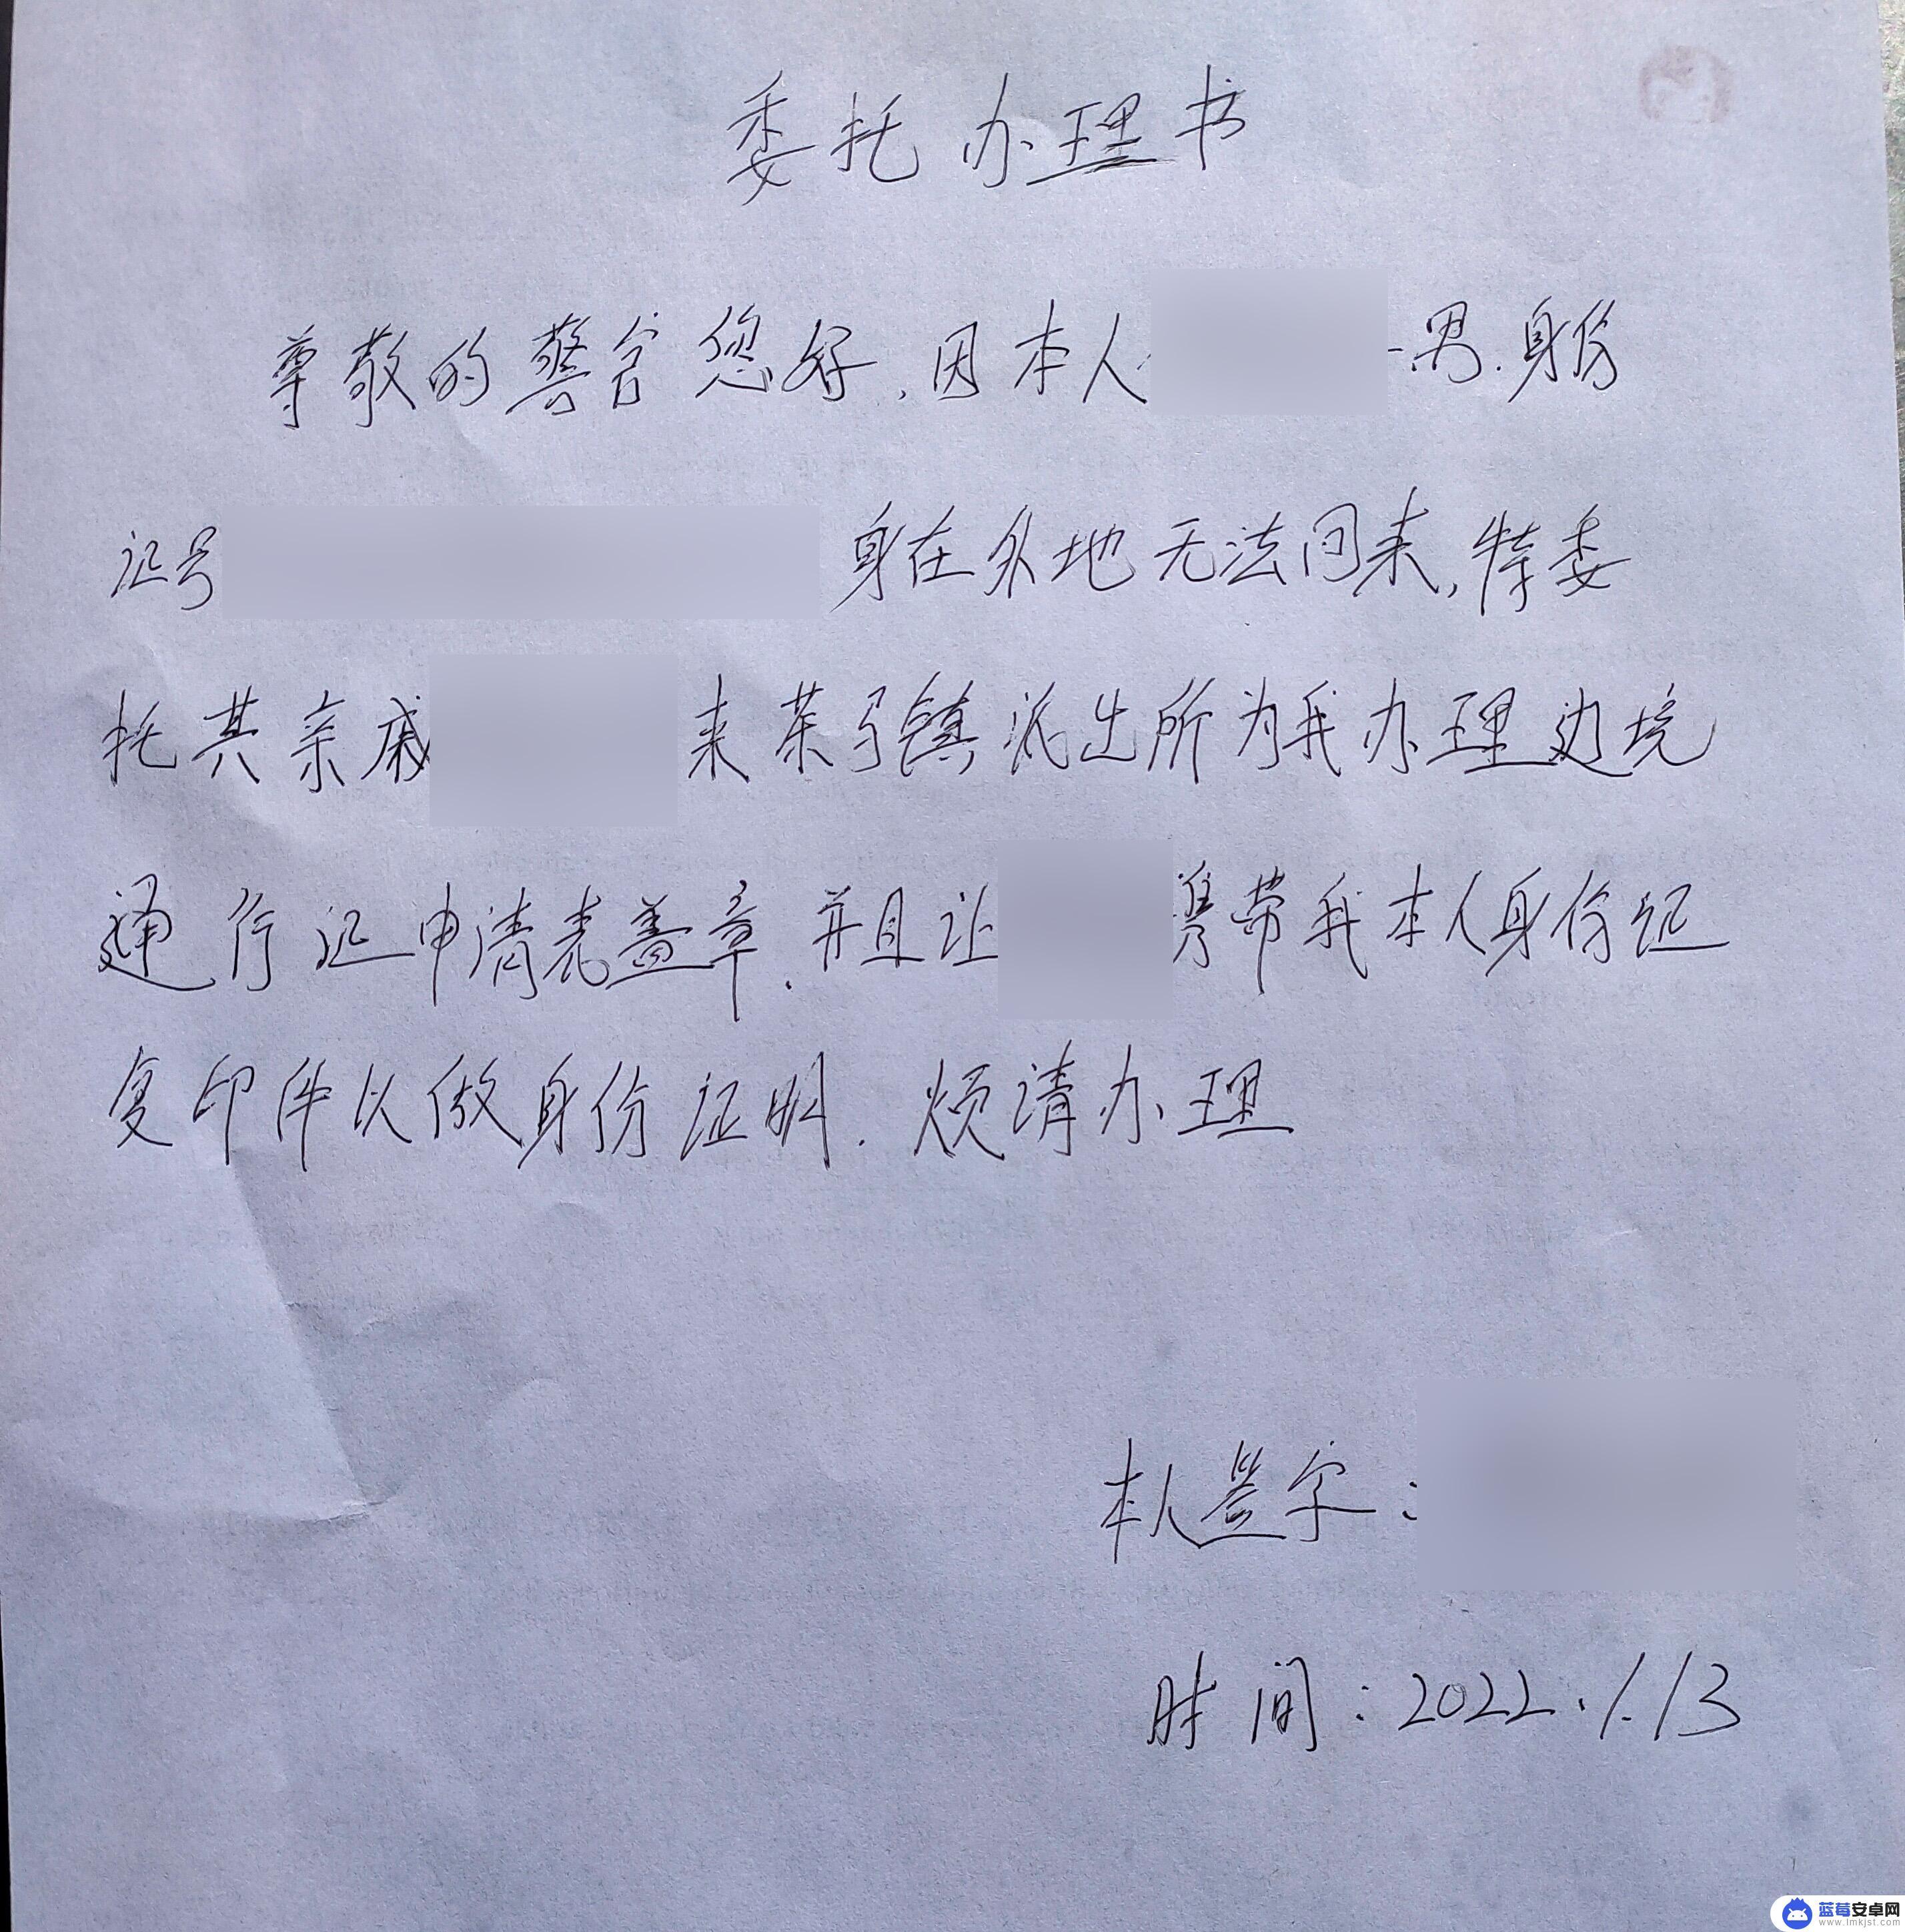 委托办理书
尊敬的警官您好,因本人 男.身份
证号 身在外地无法回来,特委
托其亲戚 来茶子镇派出所为我办理边境
通行证申请表盖章.并且让 携带我本人身份证
复印件以做身份证明.烦请办理
本人签字:
时间:2022.1.13
蓝莓安卓网
www.lmkjst.com